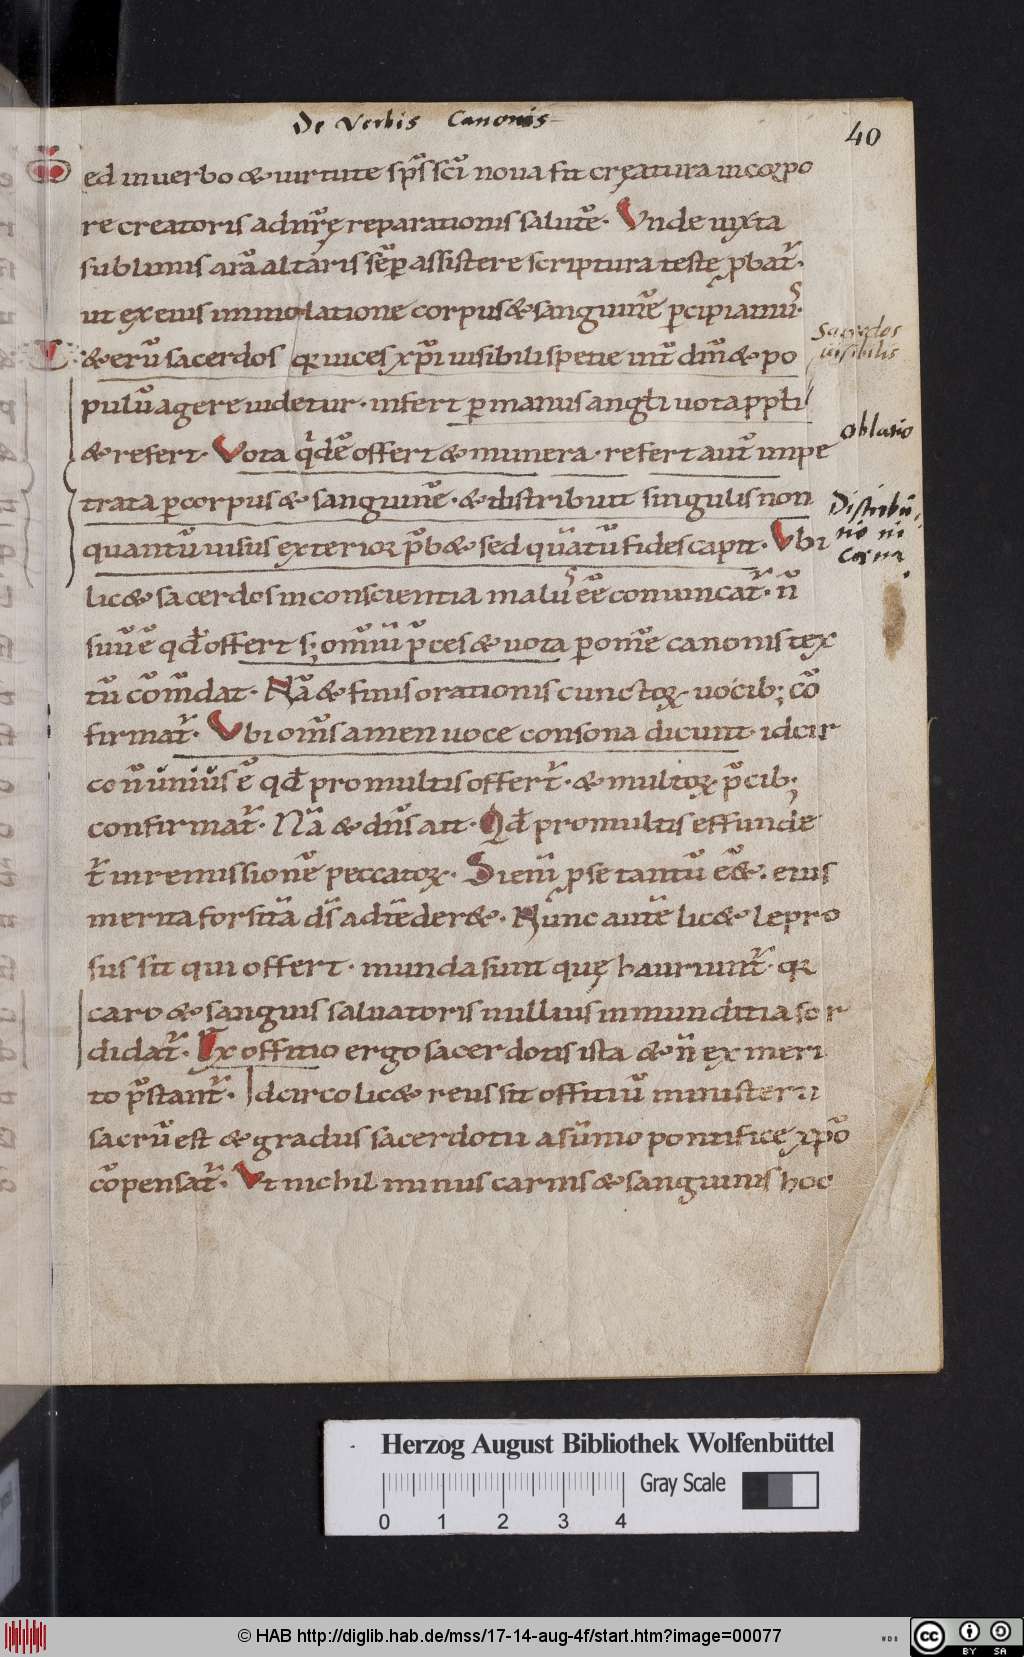 De Verbis Canonis
40
ed in uerbo & uirtute sp̄s sc̄i noua fit creatura in corpo
re creatoris ad nr̄ę reparationis salutē. Vnde iuxta
sublimis arā altaris sēp assistere scriptura teste p̄bat᷑.
ut ex eius immolatione corpus & sanguinē p̱cipiamus.
& erū sacerdos qꝛ uices xp̄i uisibili specie int̄ dm̄ & po
pulū agere uidetur. infert p̱ manus angl̄i uota pp̄li
& refert. Vota q̇dē offert & munera. refert aut̄ impe
trata p̱ corpus & sanguinē. & distribuit singulis non
quantū uisus exterior p̄b& sed quātū fides capit. Vbi
lic& sacerdos in conscientia malus ēē comunicat᷑. n̄
suū ē qđ offert s; om̄iū p̄ces & uota p̱ om̄e canonis tex
tū cōm̄dat. Nā & finis orationis cunctoꝝ uocib; cō
firmat᷑. Vbi om̄s amen uoce consona dicunt. idcir
co n̄ unius ē qđ pro multis offert᷑. & multoꝝ p̄cib;
confirmat᷑. Nā & dn̄s ait. Qđ pro multis effunde
t᷑ in remissionē peccatoꝝ. Si eni̅ p̱ se tantū ēē&. eius
merita forsitā ds̄ adtēder&. Nunc autē lic& lepro
sus sit qui offert. munda sunt quę hauriunt᷑. qꝛ
caro & sanguis saluatoris nullius inmunditia sor
didat᷑. Ex offitio ergo sacerdotis ista & n̄ ex meri
to p̄stant᷑. Idcirco lic& reus sit offitiū ministerii
sacrū est & gradus sacerdotii a sūmo pontifice xp̄o
cōpensat᷑. Vt nichil minus carnis & sanguinis hoc
Sacerdos
uisibilis
oblatio
Distribu
tio in
Herzog August Bibliothek Wolfenbüttel
Gray Scale
0 1 2 3 4
© HAB http://diglib.hab.de/mss/17-14-aug-4f/start.htm?image=00077
WDB
cc BY SA